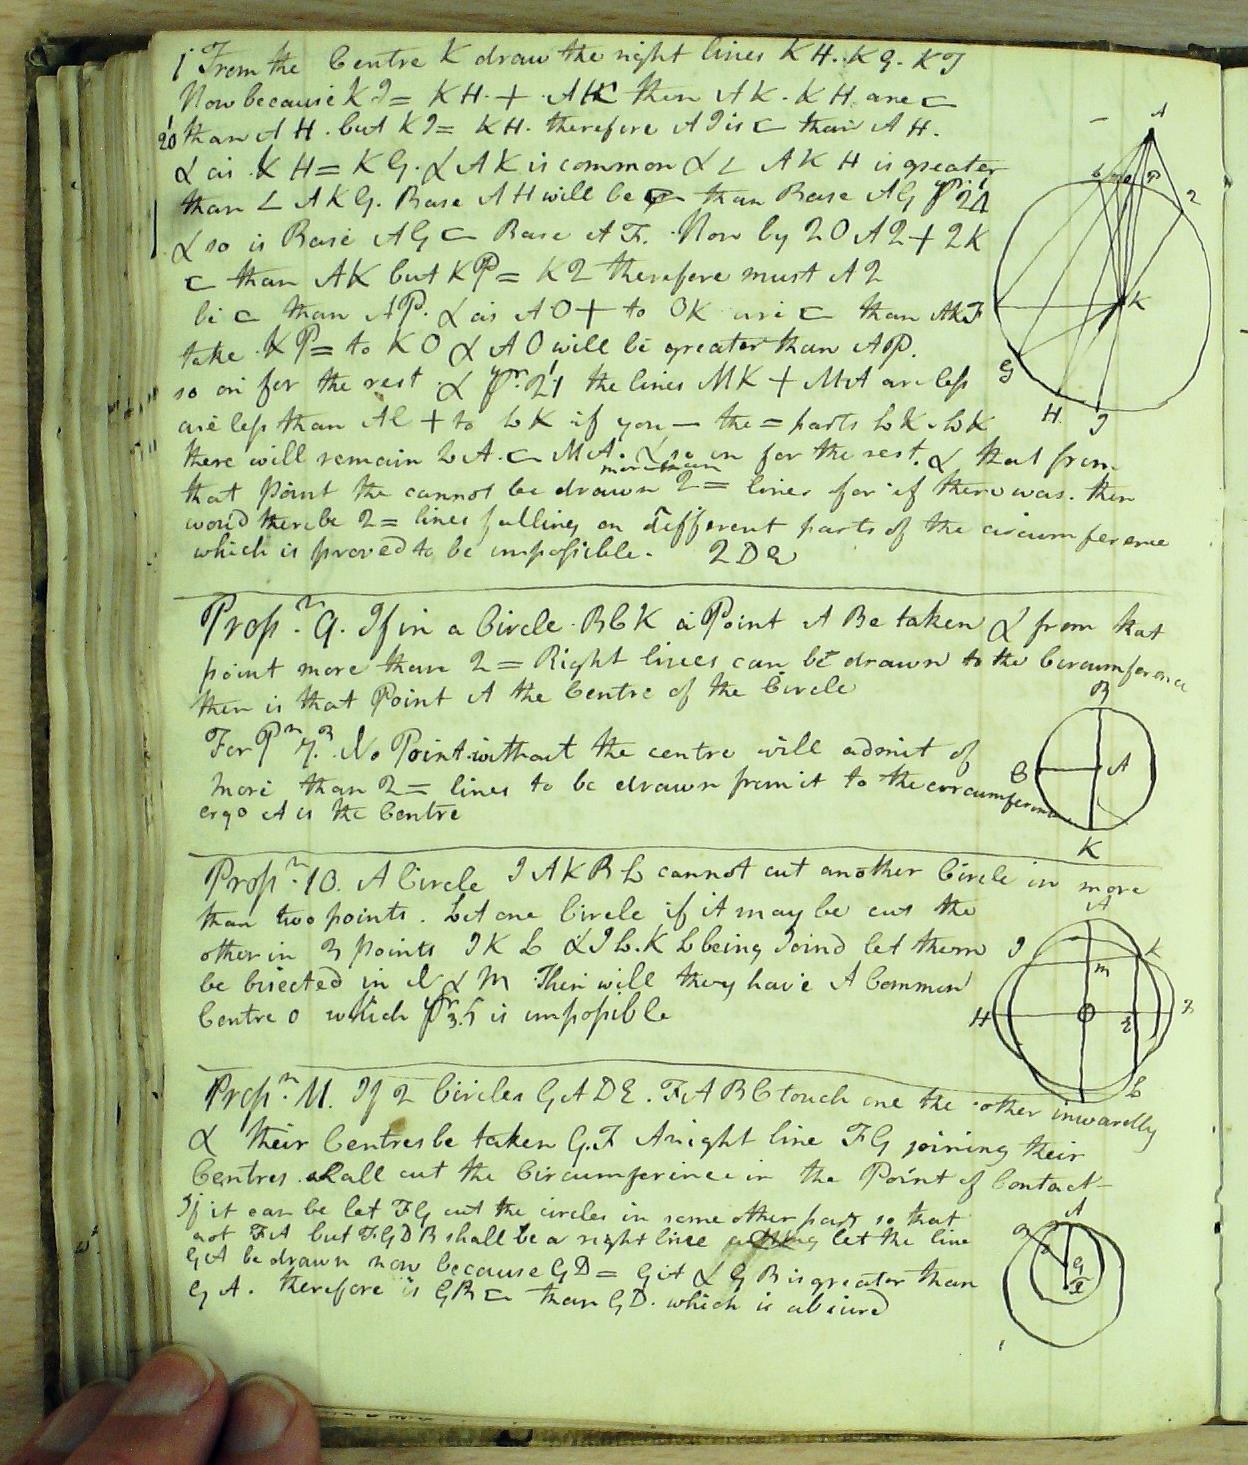 1 From the Centre K draw the right lines KH. KG. KI
Now because KI = KH. + AK then AK. KH are ⊏
20 than AH. but KI = KH. therefore AI is ⊏ than AH.
& as KH = KG. & AK is common & ∠ AKH is greater
than ∠ AKG. Base AH will be ⊏ than Base AG pr. 24
& so is Base AG ⊏ Base AF. Now by 20 A2 + 2K
⊏ than AK but KP = K2 therefore must A2
be ⊏ than AP. & as AO + to OK are ⊏ than AK
take KP = to KO & AO will be greater than AP.
so on for the rest & pr. 21 the lines MK + MA are less
are less than AL + to LK if you — the = parts LK. LK
there will remain LA. ⊏ MA. & so on for the rest. & that from
more than
that point the cannot be drawn 2 = lines for if there was. then
would there be 2 = lines falling on different parts of the circumference
which is proved to be impossible. 2DE
Prop.n 9. If in a Circle BCK a Point A Be taken & from that
point more than 2 = Right lines can be drawn to the Circumference
then is that Point A the Centre of the Circle
For Pn 7.3 No Point without the centre will admit of
more than 2 = lines to be drawn from it to the circumference
ergo A is the Centre
Prop.n 10. A Circle IAKBL cannot cut another Circle in more
than two points. Let one Circle if it may be cut the
other in 3 points IKL & IL. KL being Joind let them
be bisected in & M Then will they have A Common
Centre O which pr 3.5 is impossible
Prop.n 11. If 2 Circles GADE. FABC touch one the other inwardly
& their Centres be taken G.F A right line FG joining their
Centres shall cut the Circumference in the Point of Contact—
If it can be let FG cut the circles in some other part so that
not FA but FGDB shall be a right line let the line
GA be drawn now because GD = GA & GB is greater than
GA. therefore is GB ⊏ than GD. which is absurd
A
P
2
K
G
H
I
B
C
A
K
A
I
K
m
H
O
B
L
A
G
F